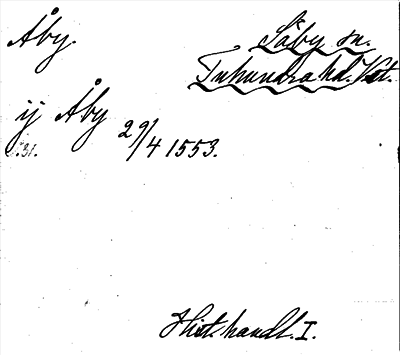 Åby.
Säby sn.
Tuhundra hd. Vstm.
ij Åby 29/4 1553.
s. 31.
Hist. handl. I.